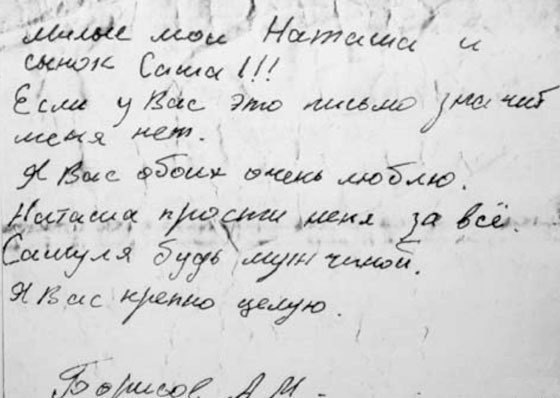 милые мои Наташа и
сынок Саша!!!
Если у Вас это письмо значит
меня нет.
Я Вас обоих очень люблю.
Наташа прости меня за всё.
Сашуля будь мужчиной.
Я Вас крепко целую.
Борисов А.М.